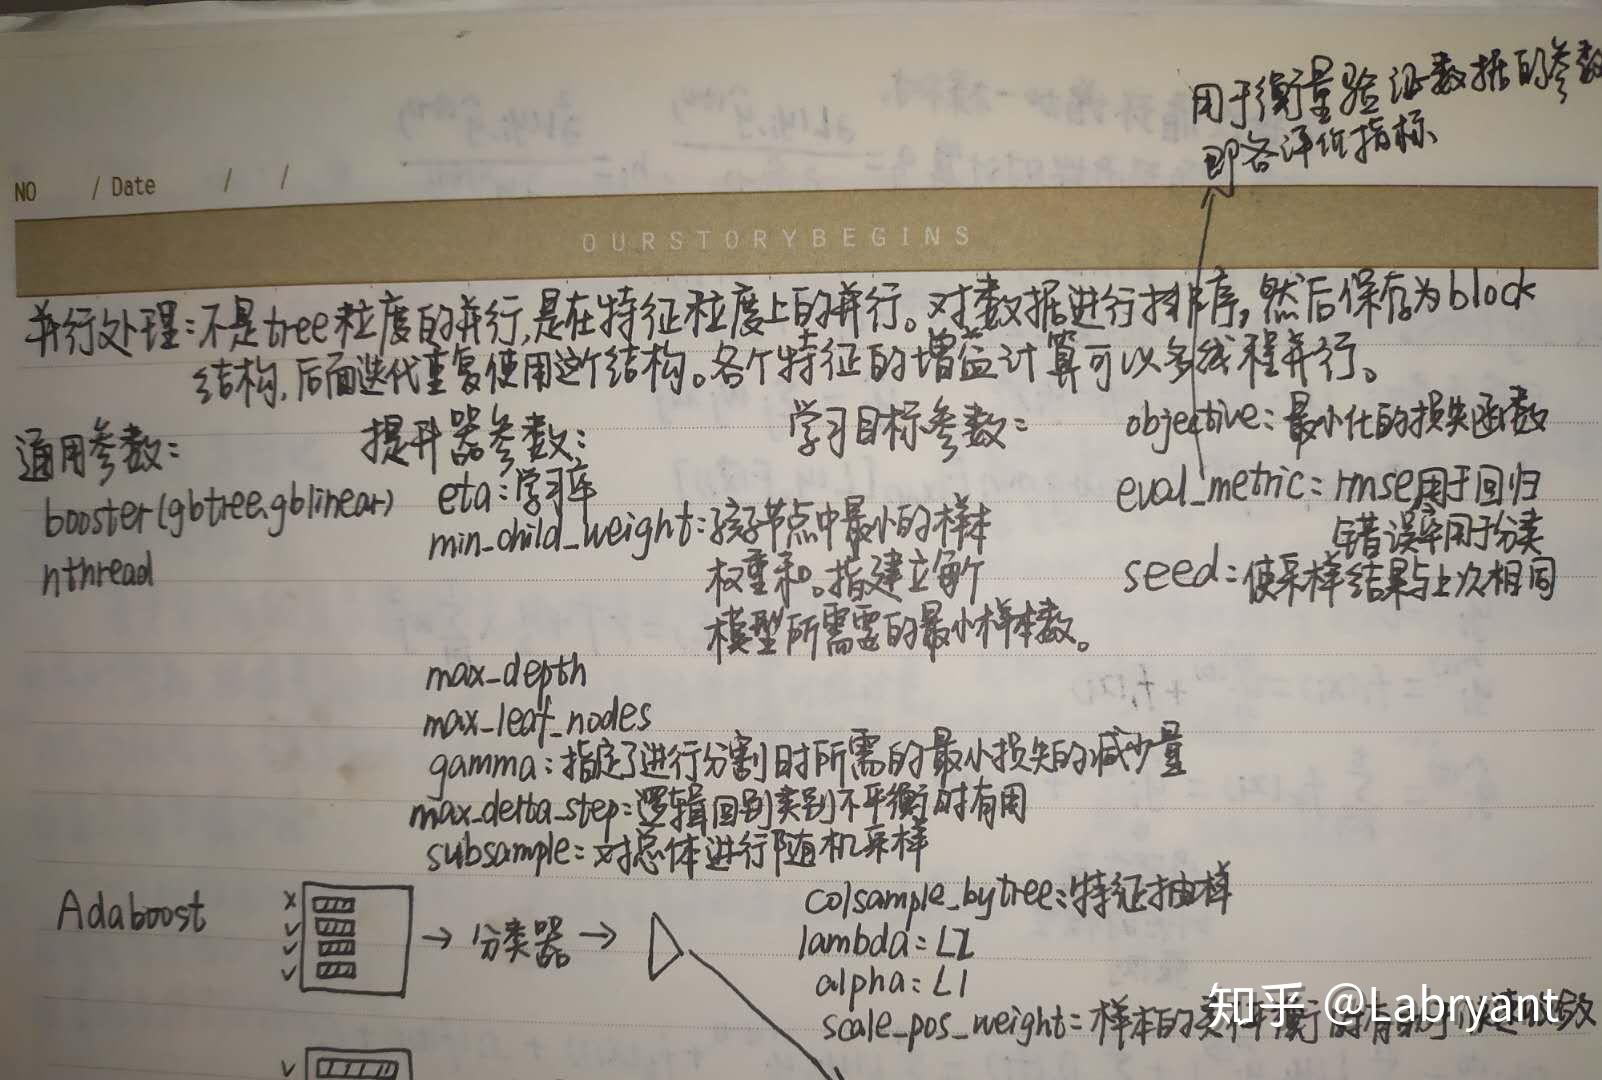 用于衡量验证数据的参数
即各评价指标
NO / Date / /
OURSTORYBEGINS
并行处理:不是tree粒度的并行,是在特征粒度上的并行。对数据进行排序,然后保存为block
结构,后面迭代重复使用这个结构。各个特征的增益计算可以多线程并行。
通用参数:
booster(gbtree、gblinear)
nthread
提升器参数:
eta:学习率
min_child_weight:孩子节点中最小的样本
权重和。指建立每个
模型所需要的最小样本数。
max_depth
max_leaf_nodes
gamma:指定了进行分割时所需的最小损失的减少量
max_delta_step:逻辑回归类别不平衡时有用
subsample:对总体进行随机采样
colsample_bytree:特征抽样
lambda:L2
alpha:L1
scale_pos_weight:样本的类不平衡时有助于快速收敛
学习目标参数:
objective:最小化的损失函数
eval_metric:rmse用于回归
错误率用于分类
seed:使采样结果与上次相同
Adaboost
→ 分类器 →
知乎 @Labryant